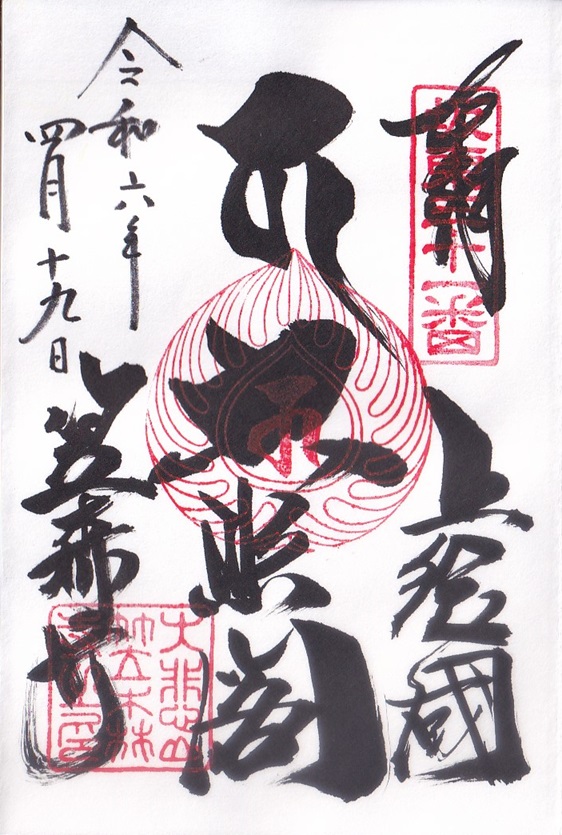 奉拝
坂東三十一番
上総國
大悲閣
笠森寺
大悲山
笠森
令和六年
四月十九日